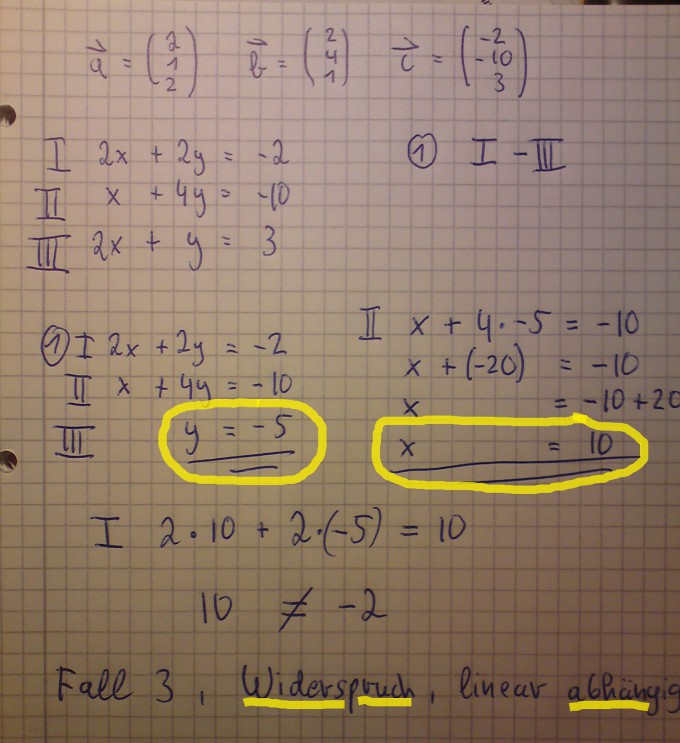 a⃗ = (2 1 2) b⃗ = (2 4 1) c⃗ = (-2 -10 3)
I 2x + 2y = -2 ① I - III
II x + 4y = -10
III 2x + y = 3
① I 2x + 2y = -2
II x + 4y = -10
III y = -5
II x + 4 · -5 = -10
x + (-20) = -10
x = -10 + 20
x = 10
I 2 · 10 + 2·(-5) = 10
10 ≠ -2
Fall 3, Widerspruch, linear abhängig